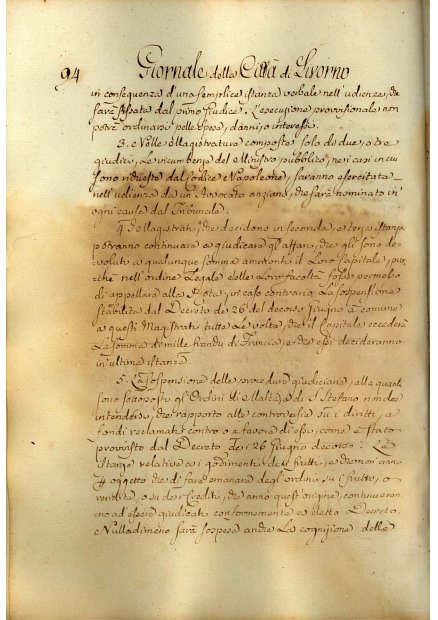 94 Giornale della Città di Livorno
in conseguenza d'una semplice istanza verbale nell'udienza, che
sarà fissata dal primo Giudice. L'esecuzione provvisionale non
potrà ordinarsi pelle spese, danni, o interessi.
3. Nelle Magistrature composte solo da due, o tre
giudici, Le incumbenze del Ministro pubblico, nei casi in cui
sono richieste dal Codice Napoleone, saranno esercitate
nell'udienza da un Avvocato anziano, che sarà nominato in
ogni causa dal Tribunale.
4. I Magistrati, che decidono in seconda, e terza istanza
potranno continuare a giudicare gl'affari, che gli sono de-
voluti a qualunque somma ammonti il Loro Capitale, pur-
chè nell'ordine Legale delle Loro facoltà fosse permesso
di appellare alla Rota, in caso contrario La sospensione
stabilita dal Decreto de' 26 del decorso Giugno è comune
a questi Magistrati tutte Le volte, che il Capitale eccederà
La somma di mille franchi di Francia, e che essi decideranno
in ultima istanza.
5. La sospensione delle procedure giudiciarie, alla quale
sono sottoposti gl'Ordini di Malta, e di S. Stefano non dee
intendersi, che rapporto alle controversie su i diritti, e
fondi reclamati contro o a favore di essi, come è stato
provvisto dal Decreto dei 26 Giugno decorso. Le
Istanze relative ai godimenti de' frutti, e che non anno
p. oggetto che di far domandare degl'ordini su i frutti, o
rendite, o su de i Crediti, che anno quest'origine, continueran-
no ad essere giudicati conformemente a detto Decreto.
Nulladimeno sarà sospesa anche La cognizione delle